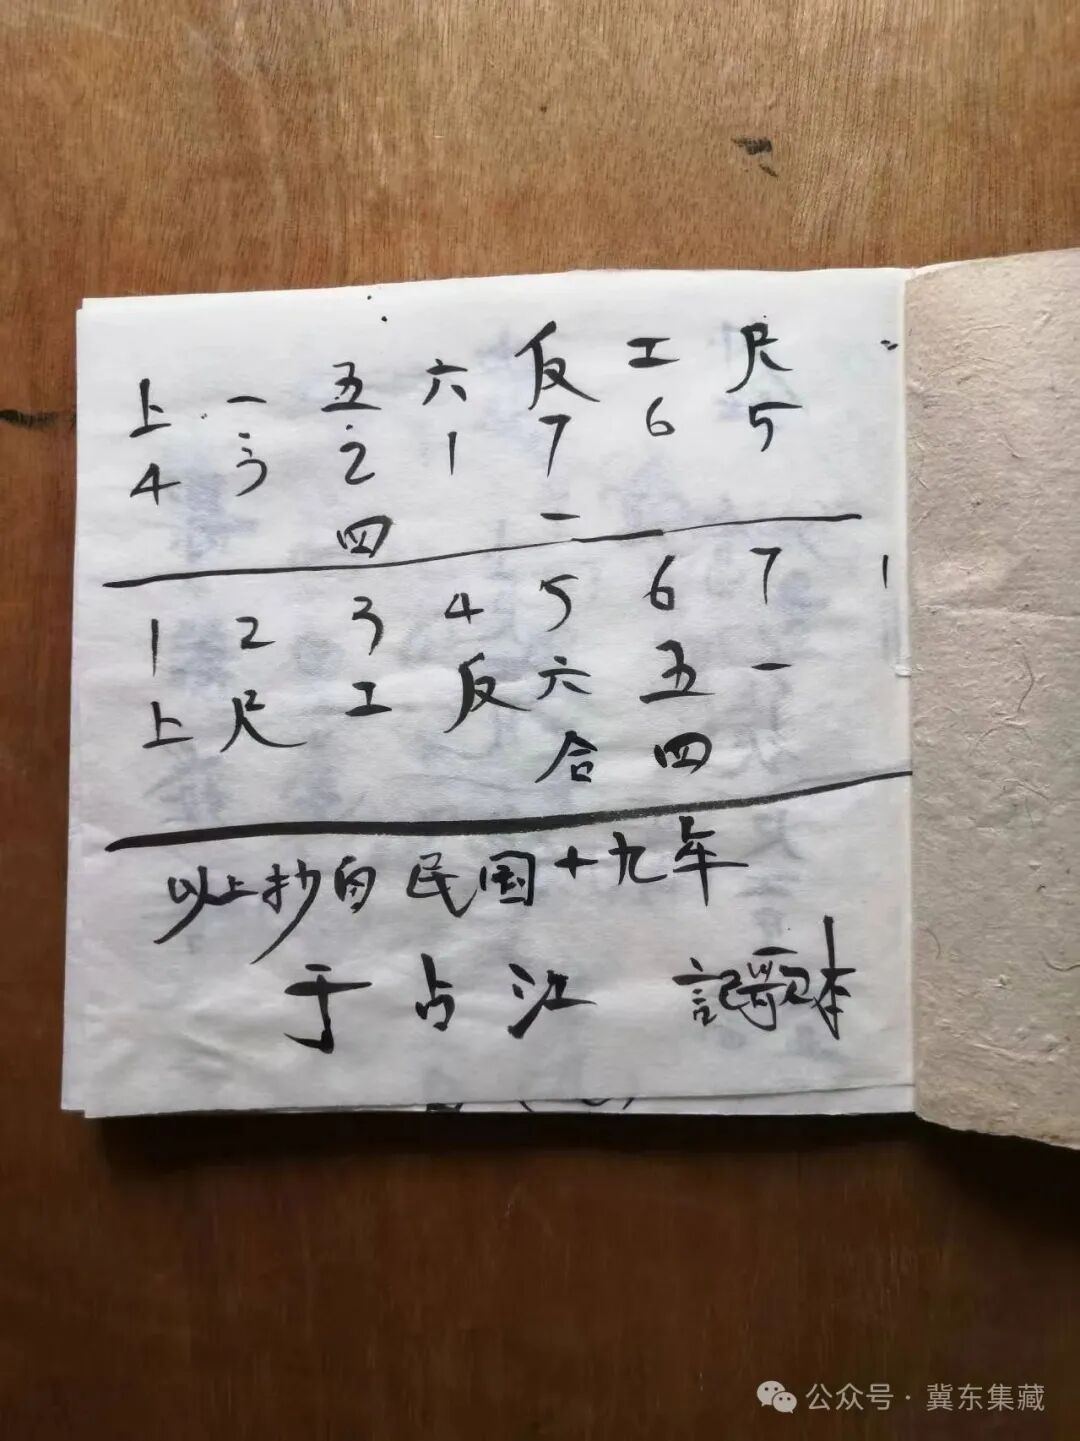 上 一 五 六 反 工 尺
4 3 2 1 7 6 5
四 一
1 2 3 4 5 6 7 1
上 尺 工 反 六 五 一
合 四
以上抄自民国十九年
于占江 記歌本
公众号·冀东集藏